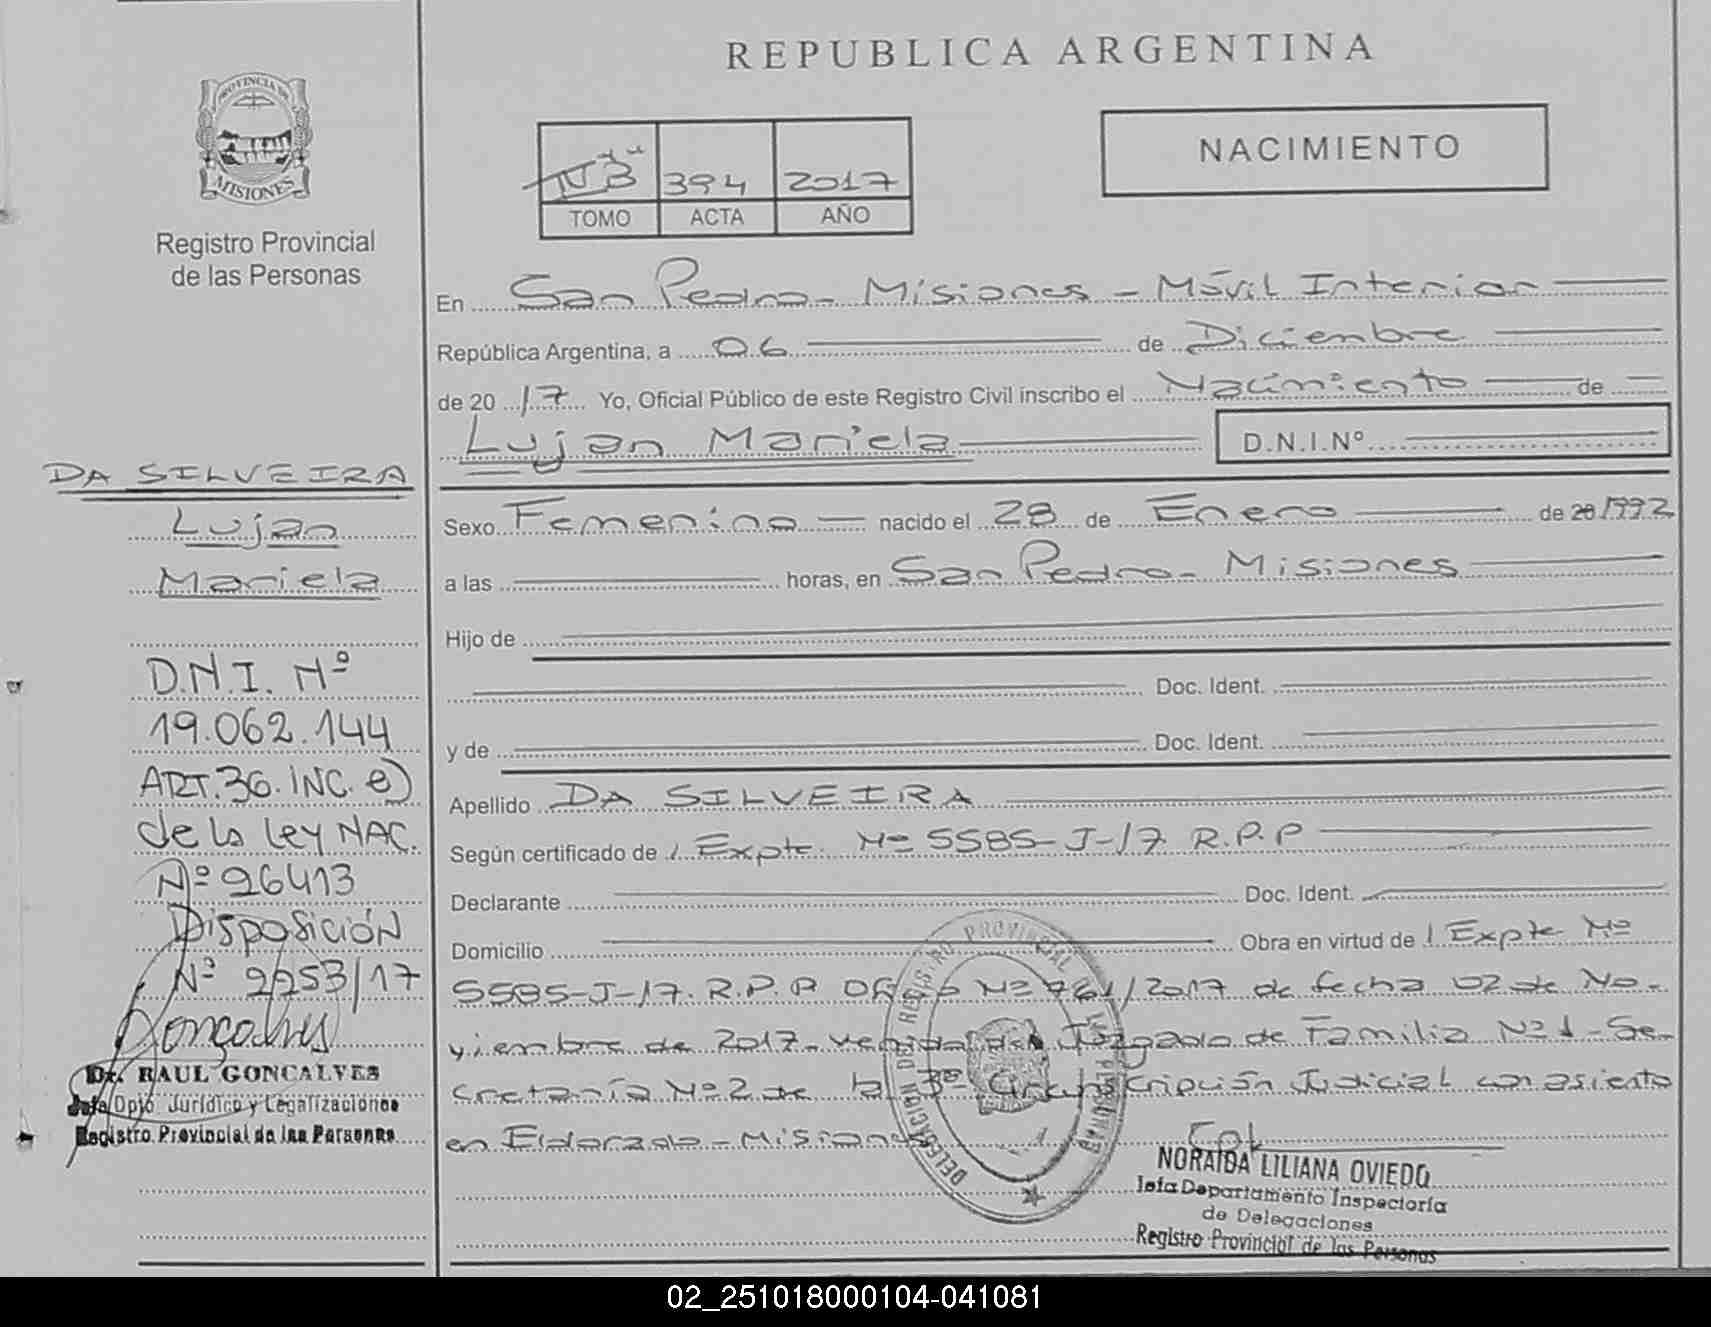 REPUBLICA ARGENTINA
NACIMIENTO
394 2017
TOMO ACTA AÑO
PROVINCIA DE
MISIONES
Registro Provincial
de las Personas
DA SILVEIRA
Lujan
Mariela
D.N.I. Nº
19.062.144
ART.36.INC. e)
de la Ley NAC.
Nº 26413
Disposición
Nº 2253/17
Dr. RAUL GONCALVES
Jefe Dpto. Jurídico y Legalizaciones
Registro Provincial de las Personas
En San Pedro - Misiones - Móvil Interior
República Argentina, a 06 de Diciembre
de 20 17 Yo, Oficial Público de este Registro Civil inscribo el Nacimiento de
Lujan Mariela D.N.I.Nº
Sexo Femenino nacido el 28 de Enero de 20 1992
a las horas, en San Pedro - Misiones
Hijo de
Doc. Ident.
y de Doc. Ident.
Apellido DA SILVEIRA
Según certificado de / Expte. Nº 5585-J-17 R.P.P
Declarante Doc. Ident.
Domicilio Obra en virtud de / Expte Nº
5585-J-17. R.P.P Nº /2017 de fecha 02 de No-
viembre de 2017- Juzgado de Familia Nº 1 - Se-
cretaría Nº 2 de la 3º Circunscripción Judicial con asiento
en Eldorado - Misiones
DELEGACION DEL REGISTRO PROVINCIAL DE LAS PERSONAS
NORAIDA LILIANA OVIEDO
Jefa Departamento Inspectoría
de Delegaciones
Registro Provincial de las Personas
02_251018000104-041081